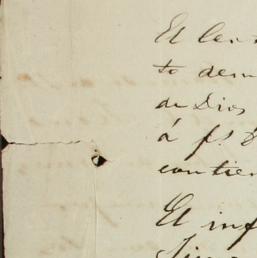 El cen
to dem
de Dios
á fs.
contien
El inf